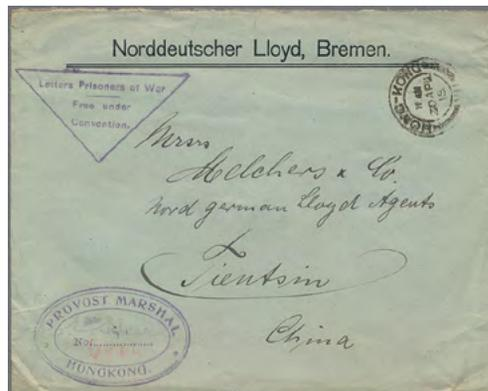 Norddeutscher Lloyd, Bremen.
Letters Prisoners of War
Free under
Convention.
HONG-KONG
20 AP
15
Messrs
Melchers & Co.
Nord german Lloyd Agents
Tientsin
China
PROVOST MARSHAL
No.
HONGKONG.